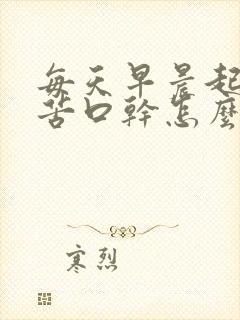 每天早晨起
苦口幹怎麼
寒烈